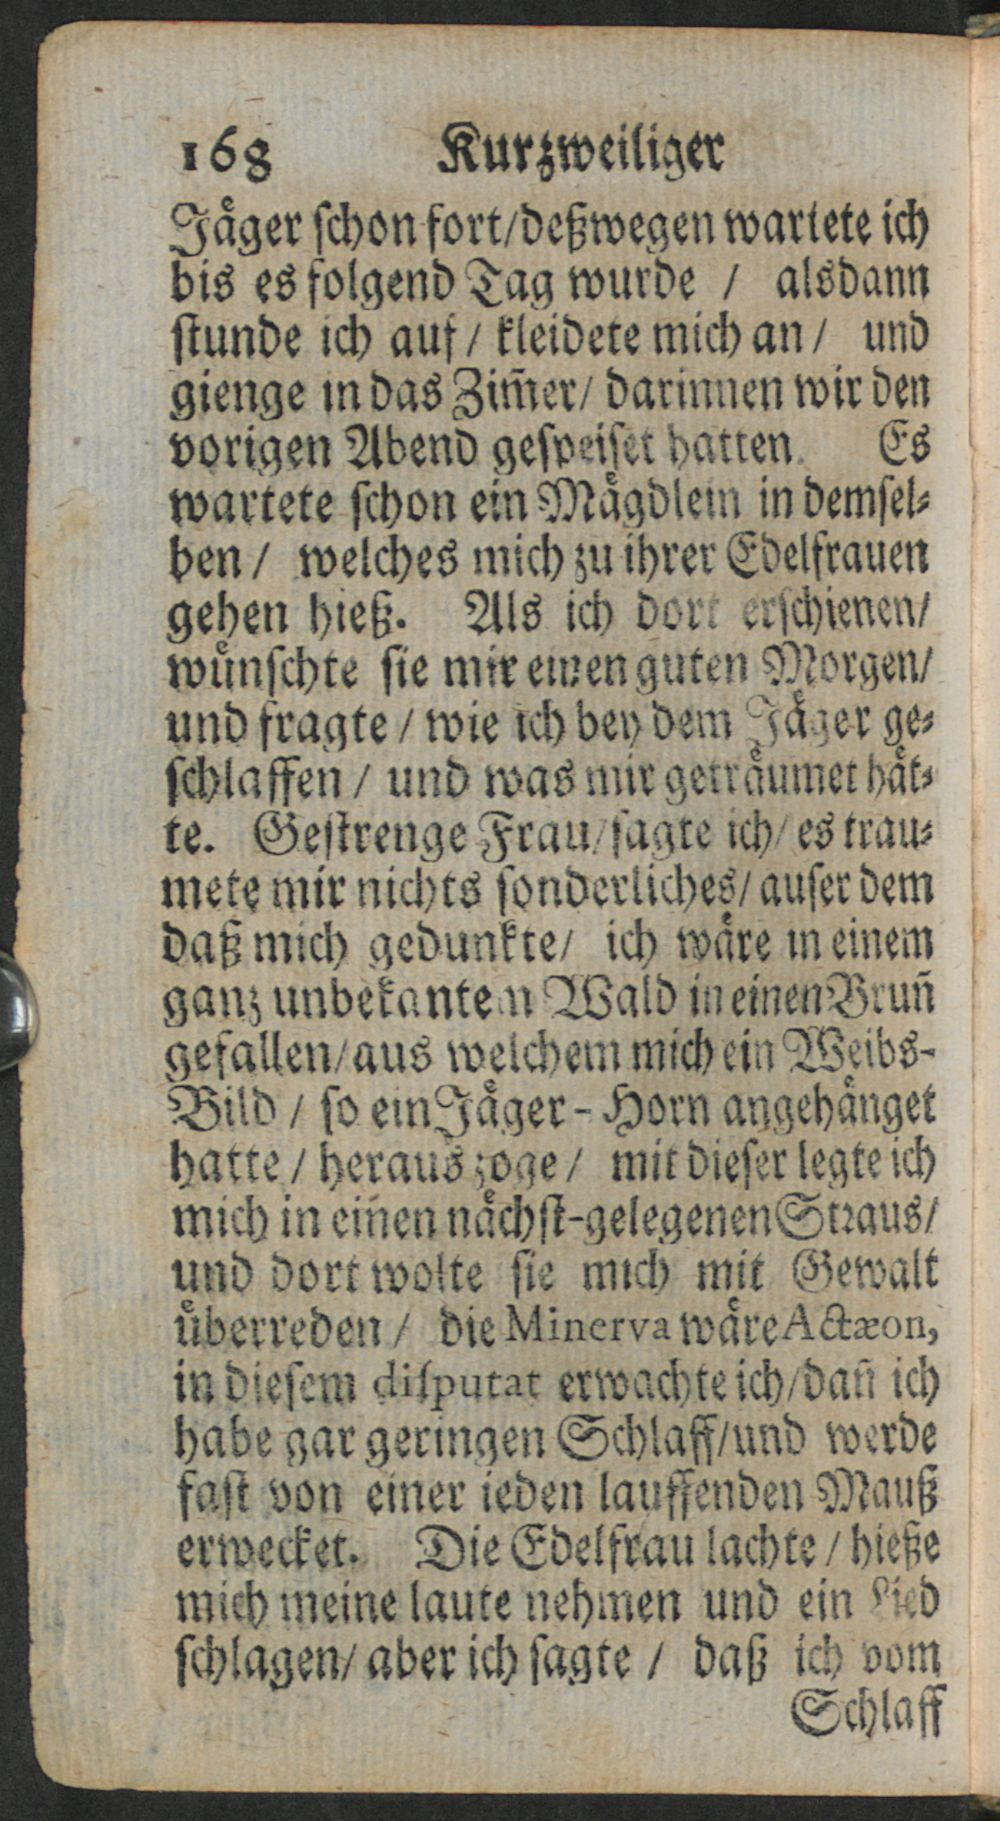 168 Kurzweiliger
Jåger schon fort/deßwegen wartete ich
bis es folgend Tag wurde / alsdann
stunde ich auf / kleidete mich an / und
gienge in das Zim̃er/ darinnen wir den
vorigen Abend gespeiset hatten. Es
wartete schon ein Mågdlein in demsel-
ben / welches mich zu ihrer Edelfrauen
gehen hieß. Als ich dort erschienen/
wůnschte sie mir einen guten Morgen/
und fragte / wie ich bey dem Jåger ge-
schlaffen / und was mir getråumet håt-
te. Gestrenge Frau/sagte ich/ es trau-
mete mir nichts sonderliches/ auser dem
daß mich gedunkte/ ich wåre in einem
ganz unbekanten Wald in einen Brun̄
gefallen/aus welchem mich ein Weibs-
Bild / so ein Jåger-Horn angehånget
hatte / heraus zoge / mit dieser legte ich
mich in einen nåchst-gelegenen Straus/
und dort wolte sie mich mit Gewalt
ůberreden / die Minerva wåre Actæon,
in diesem disputat erwachte ich/dan̄ ich
habe gar geringen Schlaff/und werde
fast von einer ieden lauffenden Mauß
erwecket. Die Edelfrau lachte / hieße
mich meine laute nehmen und ein Lied
schlagen/ aber ich sagte / daß ich vom
Schlaff